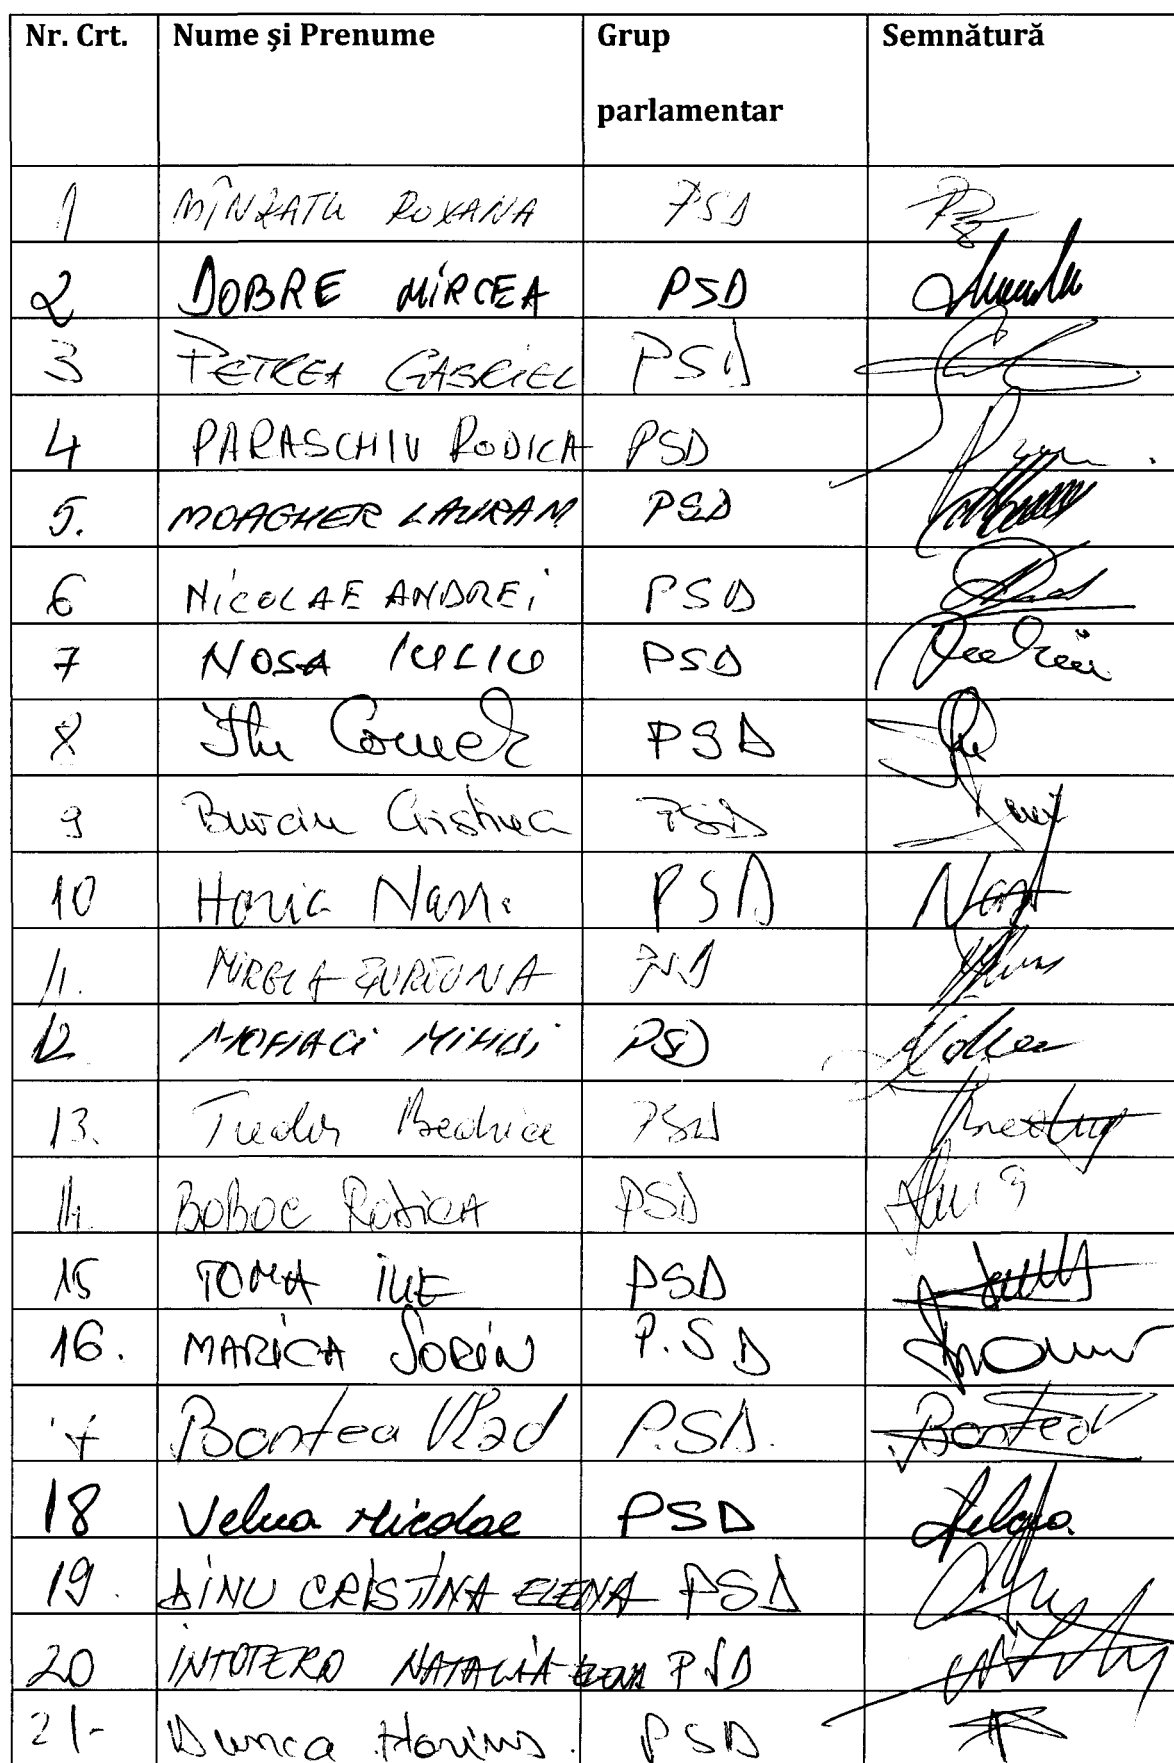 Nr. Crt. Nume și Prenume Grup parlamentar Semnătură
1 MÎNZATU ROXANA PSD
2 DOBRE MIRCEA PSD
3 PETREA GABRIEL PSD
4 PARASCHIV RODICA PSD
5. MOAGHER LAURA M PSD
6 NICOLAE ANDREI PSD
7 NOSA IULIU PSD
8 Itu Cornel PSD
9 Burciu Cristina PSD
10 Horia Nasra PSD
11. MIRELA FURTUNA PSD
12. MOHACI MIHAI PSD
13. Tudor Beatrice PSD
14. BOBOC RODICA PSD
15 TOMA ILIE PSD
16. MARICA SORIN P.SD
17 Bontea Vlad P.SD. Bontea
18 Velcea Nicolae PSD
19. DINU CRISTINA ELENA PSD
20 INTOTERO NATALIA ELENA PSD
21- Dunca Marius. PSD